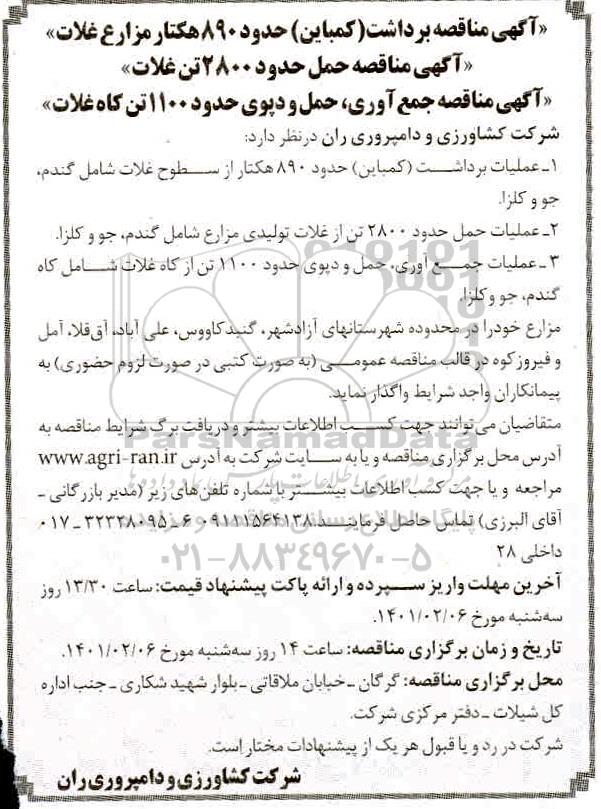 «آگهی مناقصه برداشت(کمباین) حدود ۸۹۰ هکتار مزارع غلات»
«آگهی مناقصه حمل حدود ۲۸۰۰ تن غلات»
«آگهی مناقصه جمع آوری، حمل و دپوی حدود ۱۱۰۰ تن کاه غلات»
شرکت کشاورزی و دامپروری ران درنظر دارد:
۱ـ عملیات برداشت (کمباین) حدود ۸۹۰ هکتار از سطوح غلات شامل گندم،
جو و کلزا.
۲ـ عملیات حمل حدود ۲۸۰۰ تن از غلات تولیدی مزارع شامل گندم، جو و کلزا.
۳ـ عملیات جمع آوری، حمل و دپوی حدود ۱۱۰۰ تن از کاه غلات شامل کاه
گندم، جو وکلزا.
مزارع خود را در محدوده شهرستانهای آزادشهر، گنبدکاووس، علی آباد، آق‌قلا، آمل
و فیروزکوه در قالب مناقصه عمومی (به صورت کتبی در صورت لزوم حضوری) به
پیمانکاران واجد شرایط واگذار نماید.
متقاضیان می‌توانند جهت کسب اطلاعات بیشتر و دریافت برگ شرایط مناقصه به
ParsNamadData
آدرس محل برگزاری مناقصه و یا به سایت شرکت به آدرس www.agri-ran.ir
مراجعه و یا جهت کسب اطلاعات بیشتر با شماره تلفن‌های زیر (مدیر بازرگانی ـ
آقای البرزی) تماس حاصل فرمایند. ۰۹۱۱۱۵۶۴۱۳۸ ۶ ـ ۳۲۳۲۸۰۹۵ ـ ۰۱۷
داخلی ۲۸
۰۲۱-۸۸۳۴۹۶۷۰-۵
آخرین مهلت واریز سپرده و ارائه پاکت پیشنهاد قیمت: ساعت ۱۳/۳۰ روز
سه‌شنبه مورخ ۱۴۰۱/۰۲/۰۶.
تاریخ و زمان برگزاری مناقصه: ساعت ۱۴ روز سه‌شنبه مورخ ۱۴۰۱/۰۲/۰۶.
محل برگزاری مناقصه: گرگان ـ خیابان ملاقاتی ـ بلوار شهید شکاری ـ جنب اداره
کل شیلات ـ دفتر مرکزی شرکت.
شرکت در رد و یا قبول هر یک از پیشنهادات مختار است.
شرکت کشاورزی و دامپروری ران